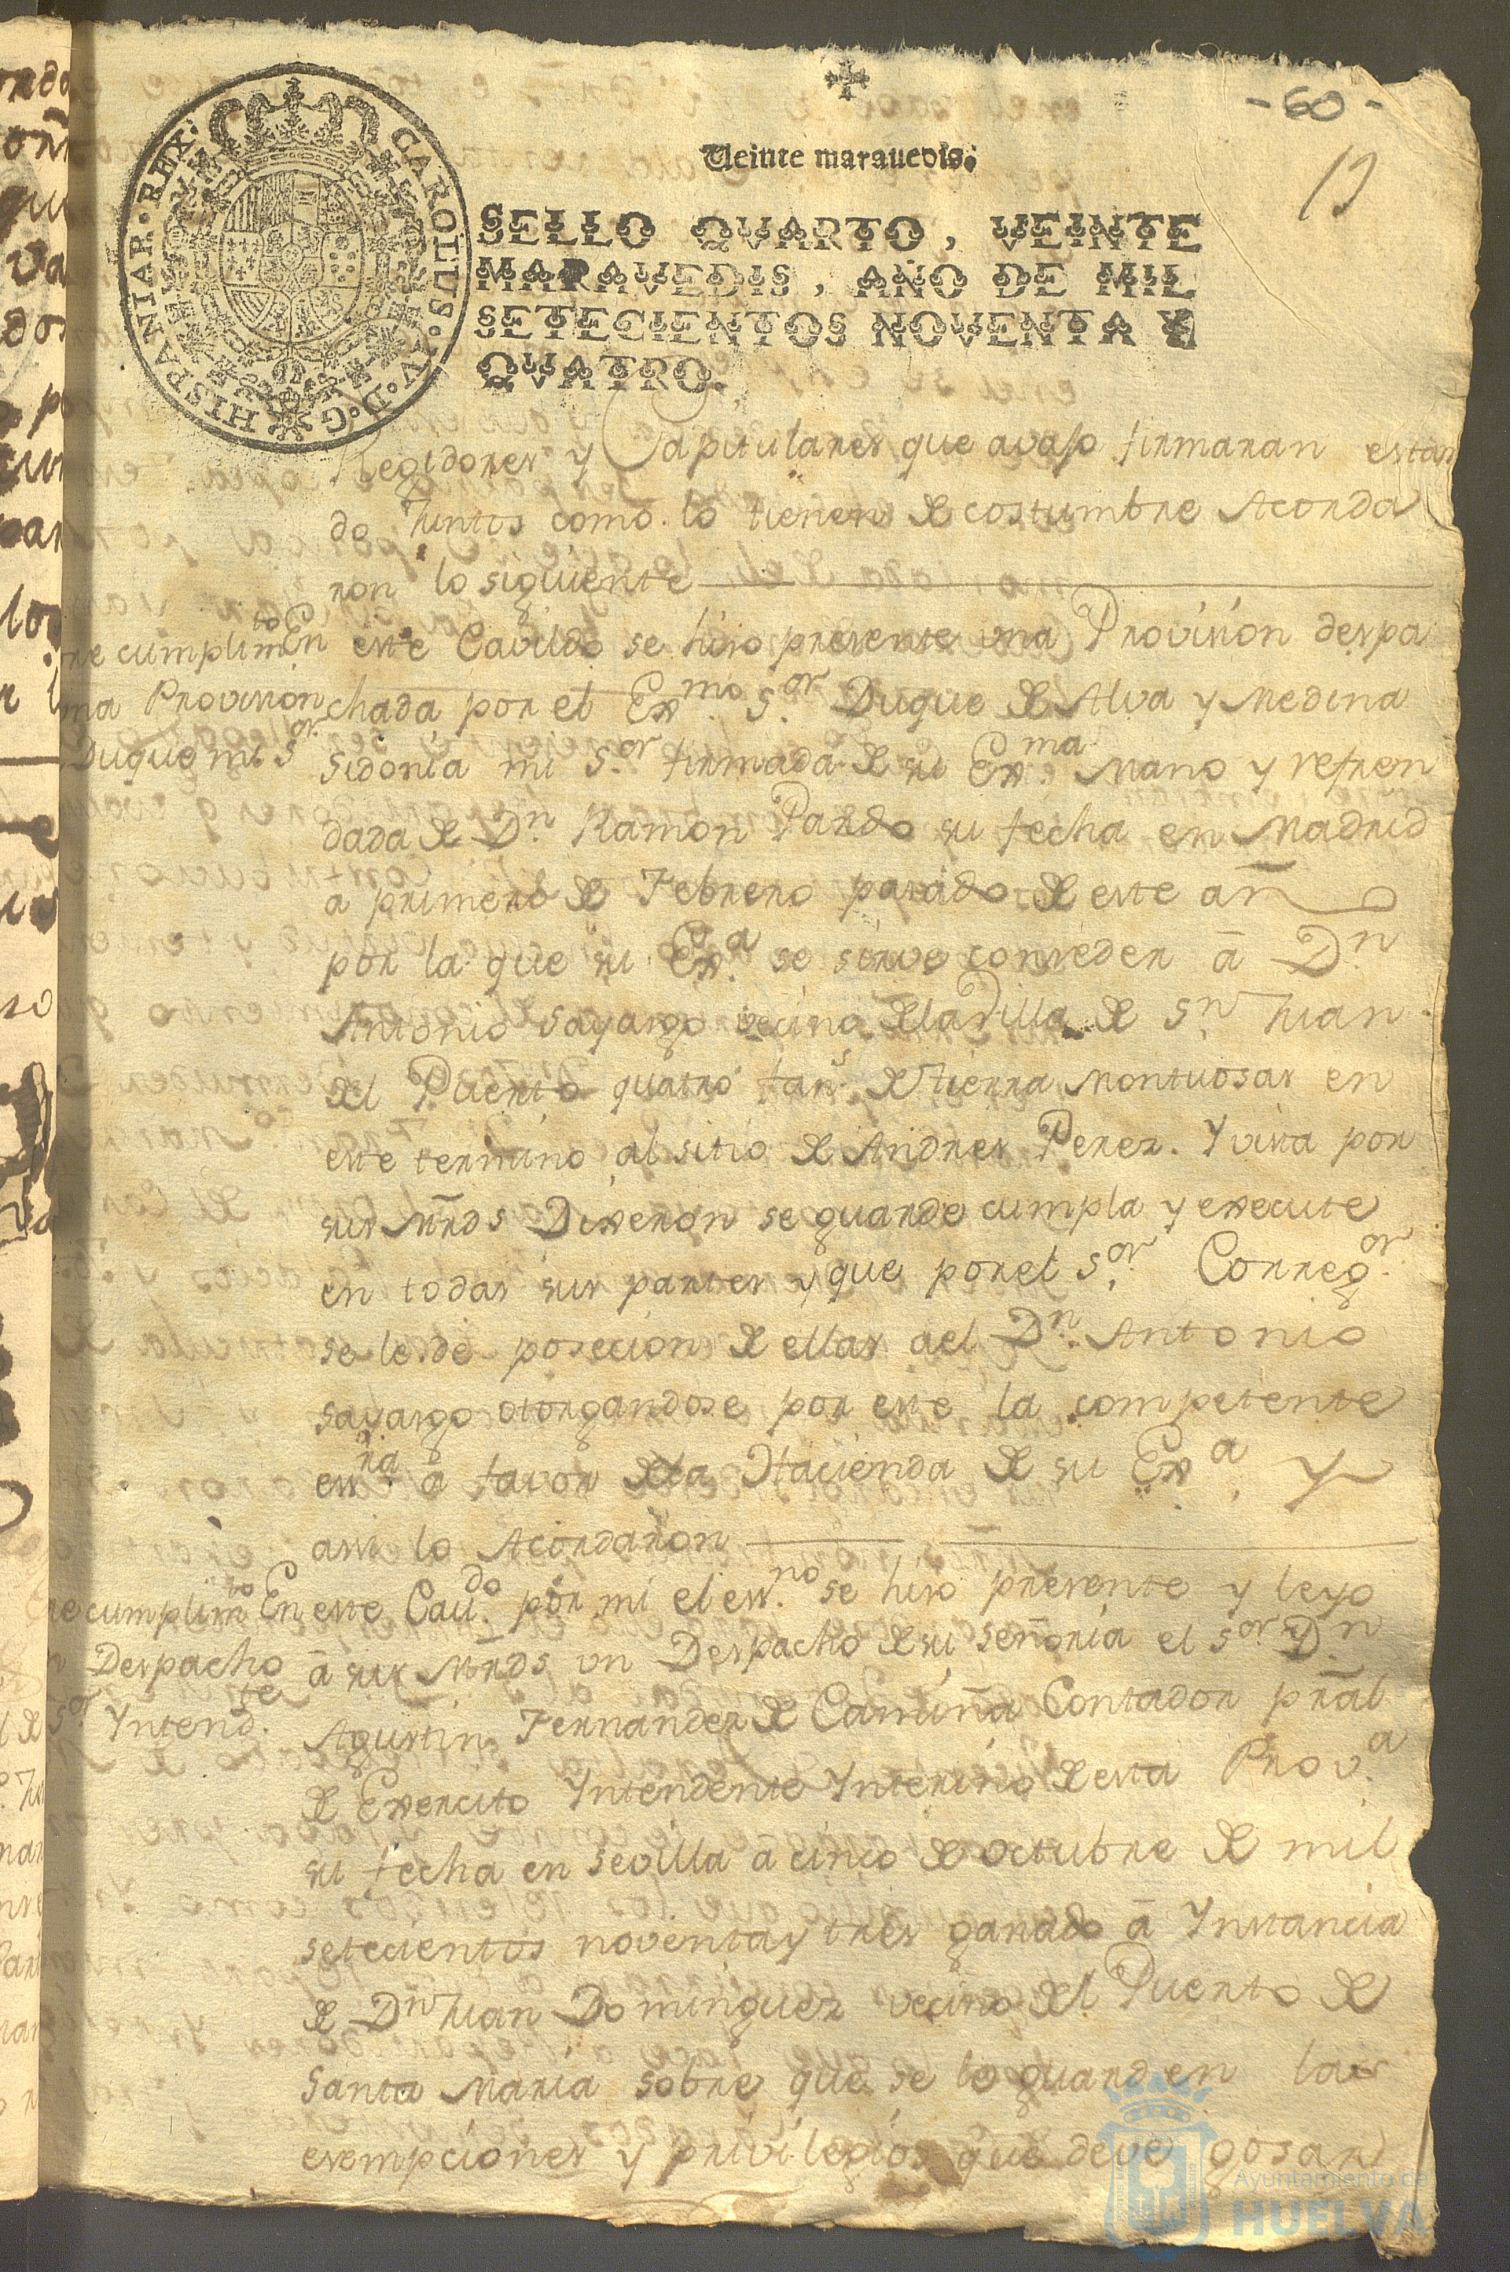 - 60 -
19
HISPANIAR. REX. CAROLUS. IV. D. G.
Veinte maravedis.
SELLO QVARTO, VEINTE
MARAVEDIS, AÑO DE MIL
SETECIENTOS NOVENTA Y
QVATRO.
Regidores y Capitulares que avajo firmaran estan
do Juntos como lo tienen de costumbre Acorda
ron lo siguiente
re cumplim.to
na Provision
Duque mi s.or
En este Cavildo se hiso presente una Provision despa
chada por el Ex.mo S.or Duque de Alva y Medina
Sidonia mi S.or firmada de su Ex.ma Mano y refren
dada de D.n Ramon Pardo su fecha en Madrid
a primero de Febrero pasado de este añ
por la que su Ex.a se sirve conseder â D.n
Antonio Sayago vecino de la Villa de S.n Juan
del Puerto quatro fan.s de tierra Montuosas en
este termino al sitio de Andres Perez. Y vista por
sus Mrds Dixeron se guarde cumpla y execute
en todas sus partes y que por el S.or Correg.or
se le de posecion de ellas a el D.n Antonio
Sayago otorgandose por este la competente
ess.ra â favor de la Hacienda de su Ex.a Y
assi lo Acordaron
re cumplim.to
n Despacho
l de S.or Yntend.te
En este Cav.do por mi el ess.no se hiso presente y leyo
â sus Mrds un Despacho de su señoria el s.or D.n
Agustin Fernandez de Camiña Contador prãl
de Exercito Yntendente Ynterino de esta Prov.a
su fecha en Sevilla a cinco de octubre de mil
setecientos noventa y tres ganado â Ynstancia
de D.n Juan Dominguez vecino del Puerto de
Santa Maria sobre que se le guarden las
exempciones y privilegios que deve gosar
Ayuntamiento de
HUELVA